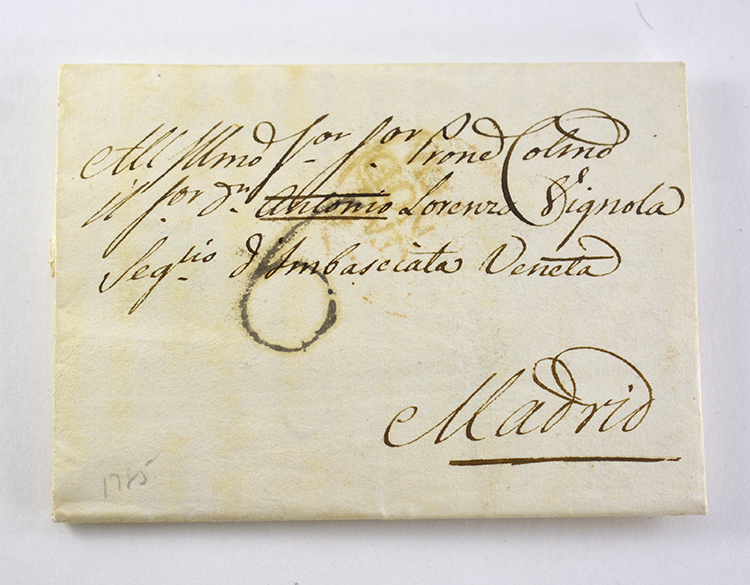 All Illmo Sor Sor Prone Colmo
il Sor Dn Antonio Lorenzo Vignola
Segrio d'Imbasciata Veneta
6
Madrid
1785